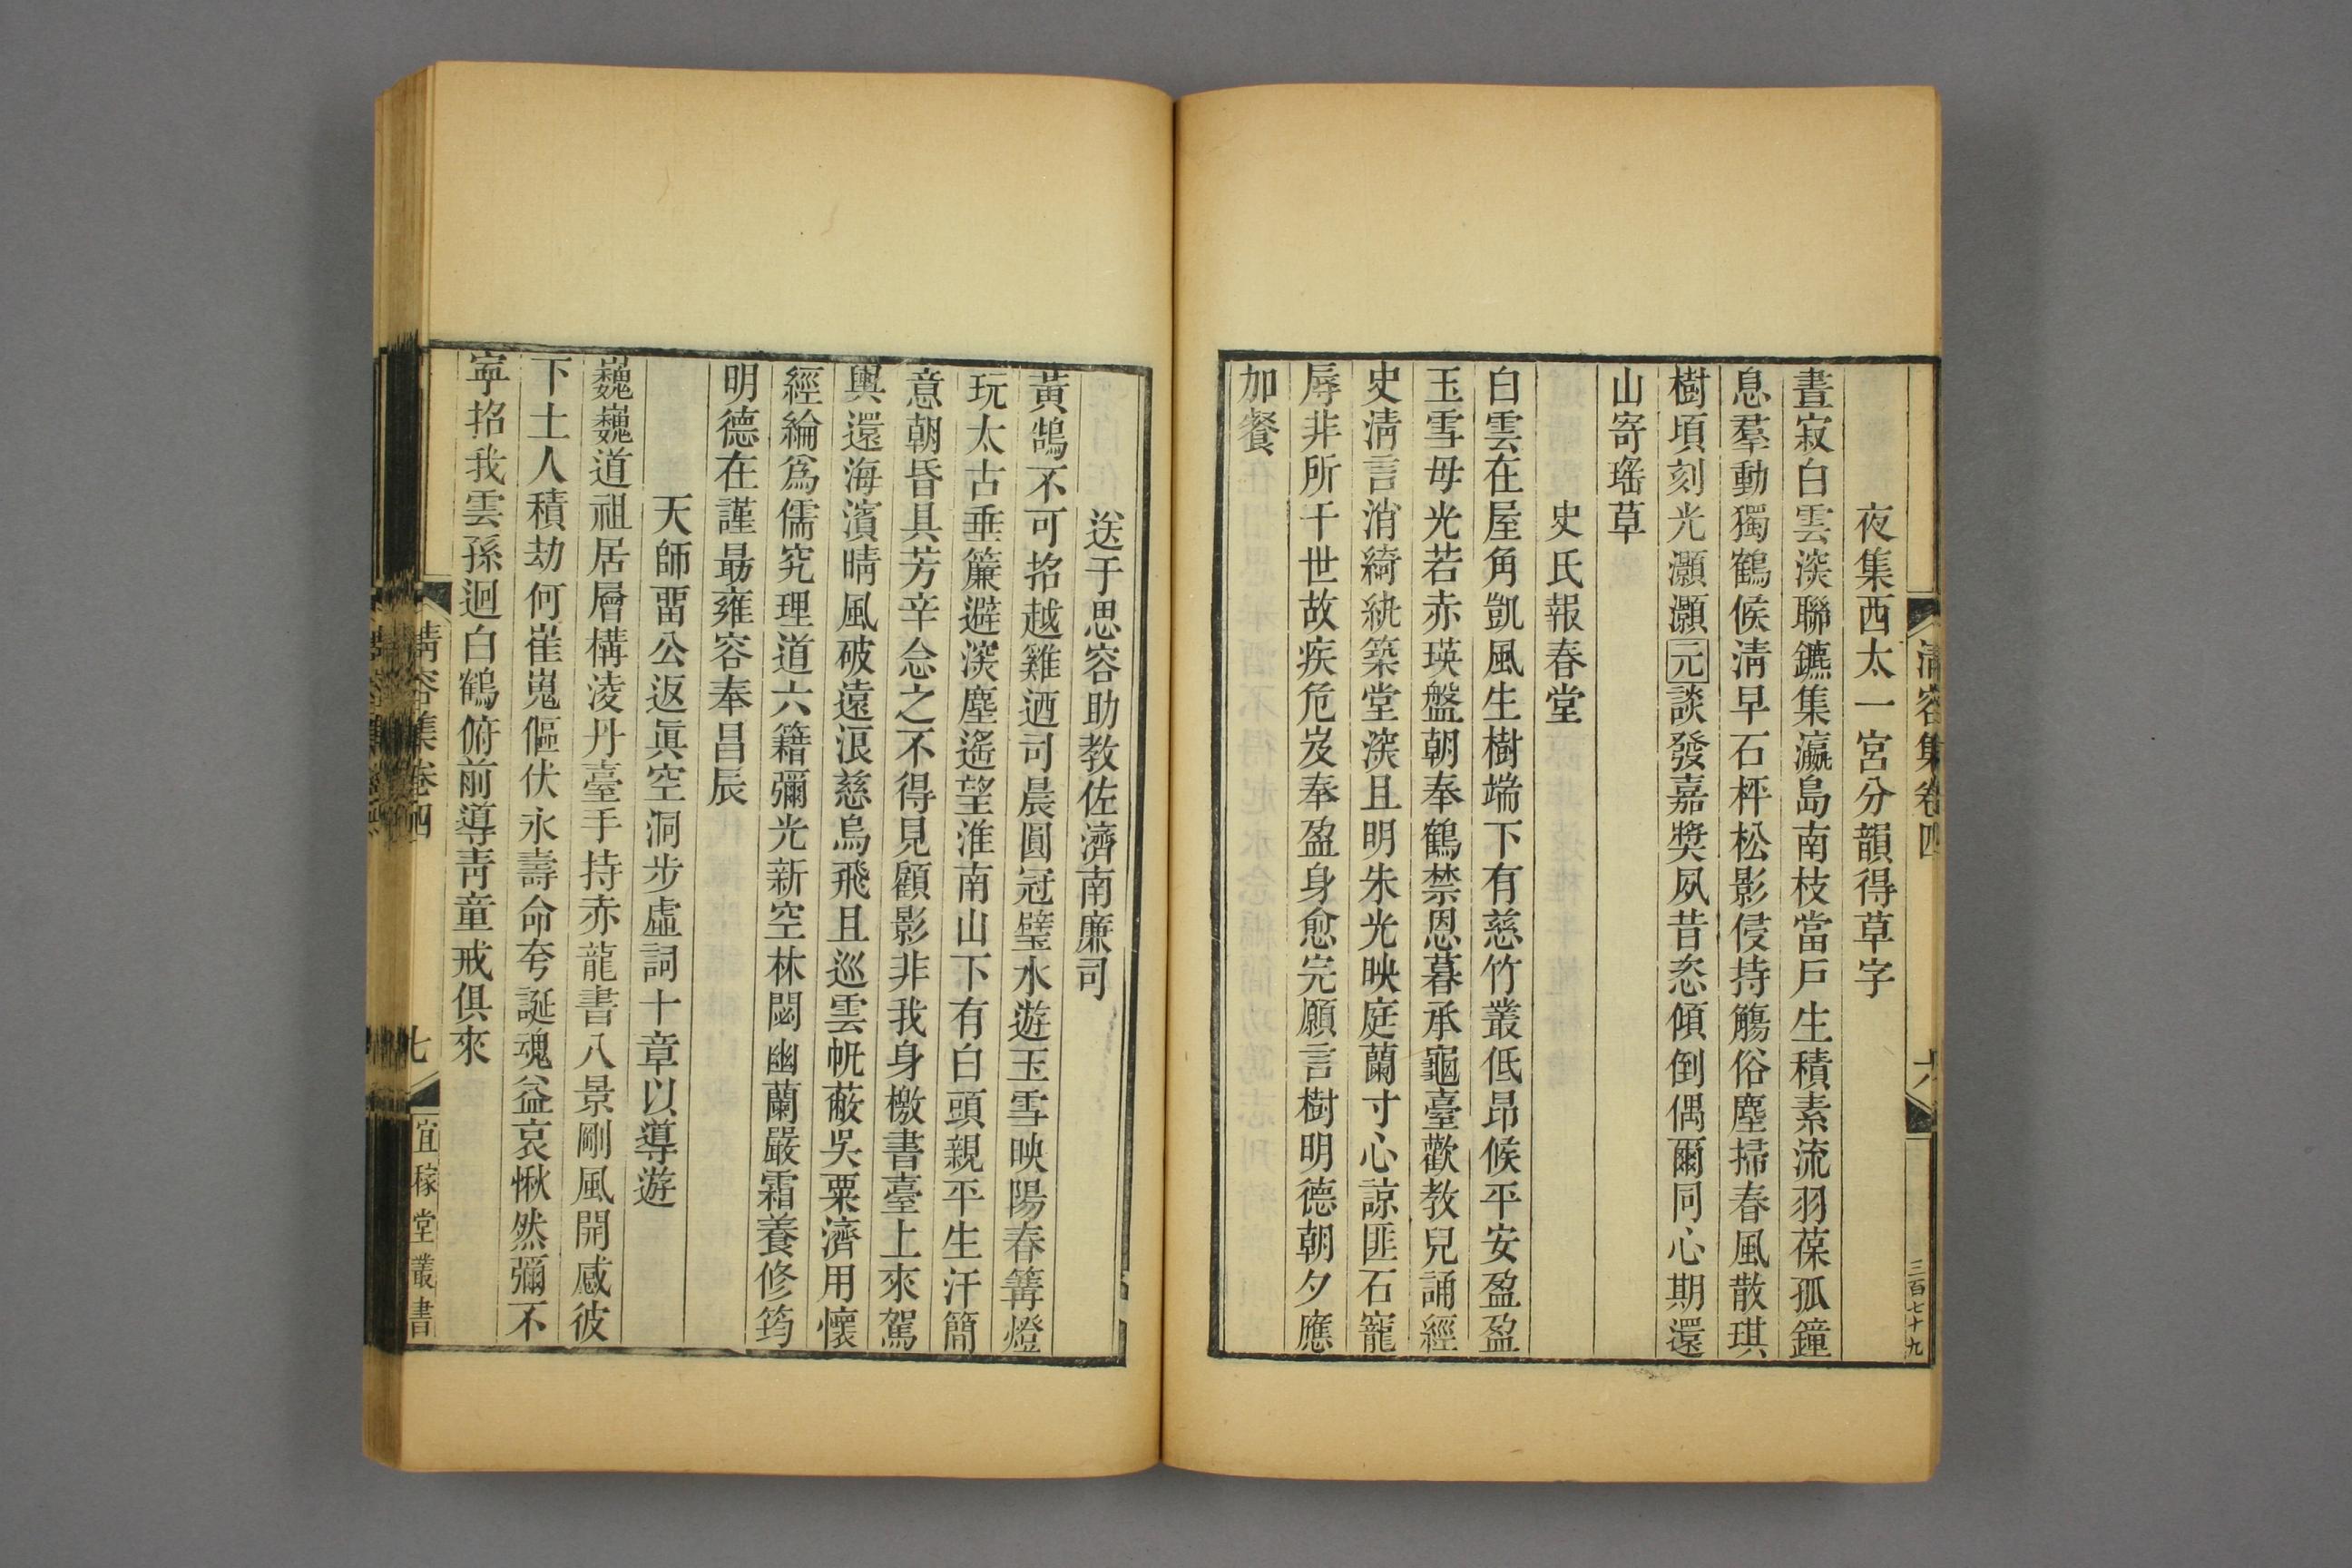 清容集卷四
六
三百七十九
夜集西太一宮分韻得草字
晝寂白雲深聯鑣集瀛島南枝當戸生積素流羽葆孤鐘
息羣動獨鶴候清早石枰松影侵持觴俗塵掃春風散琪
樹頃刻光灝灝元談發嘉奬夙昔恣傾倒偶爾同心期還
山寄瑤草
史氏報春堂
白雲在屋角凱風生樹端下有慈竹叢低昂候平安盈盈
玉雪母光若赤瑛盤朝奉鶴禁恩暮承龜臺歡教兒誦經
史清言消綺紈築堂深且明朱光映庭蘭寸心諒匪石寵
辱非所干世故疾危岌奉盈身愈完願言樹明德朝夕應
加餐
送于思容助教佐濟南廉司
黃鵠不可招越雞迺司晨圓冠璧水遊玉雪映陽春篝燈
玩太古垂簾避深塵遙望淮南山下有白頭親平生汗簡
意朝昏具芳辛念之不得見顧影非我身檄書臺上來駕
輿還海濱晴風破遠浪慈烏飛且巡雲帆蔽吳粟濟用懷
經綸爲儒究理道六籍彌光新空林閟幽蘭嚴霜養修筠
明德在謹最雍容奉昌辰
天師畱公返眞空洞步虛詞十章以導遊
巍巍道祖居層構凌丹臺手持赤龍書八景剛風開感彼
下土人積劫何崔嵬傴伏永壽命夸誕魂益哀愀然彌不
寧招我雲孫迴白鶴俯前導靑童戒俱來
清容集卷四
七
宜稼堂叢書